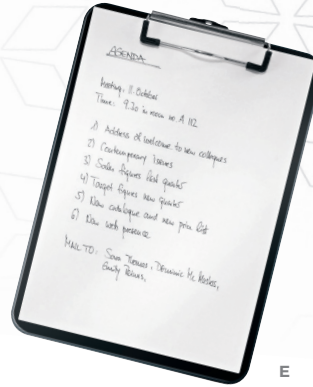 AGENDA
Meeting, 11. October
Time: 9.30 in room no. A 112
1) Address of welcome to new colleques
2) Contemporary Issues
3) Sales figures last quarter
4) Target figures new quarter
5) New catalogue and new price list
6) New web presence
MAIL TO: Sara Thomas, Dominic Mc
Emily
E